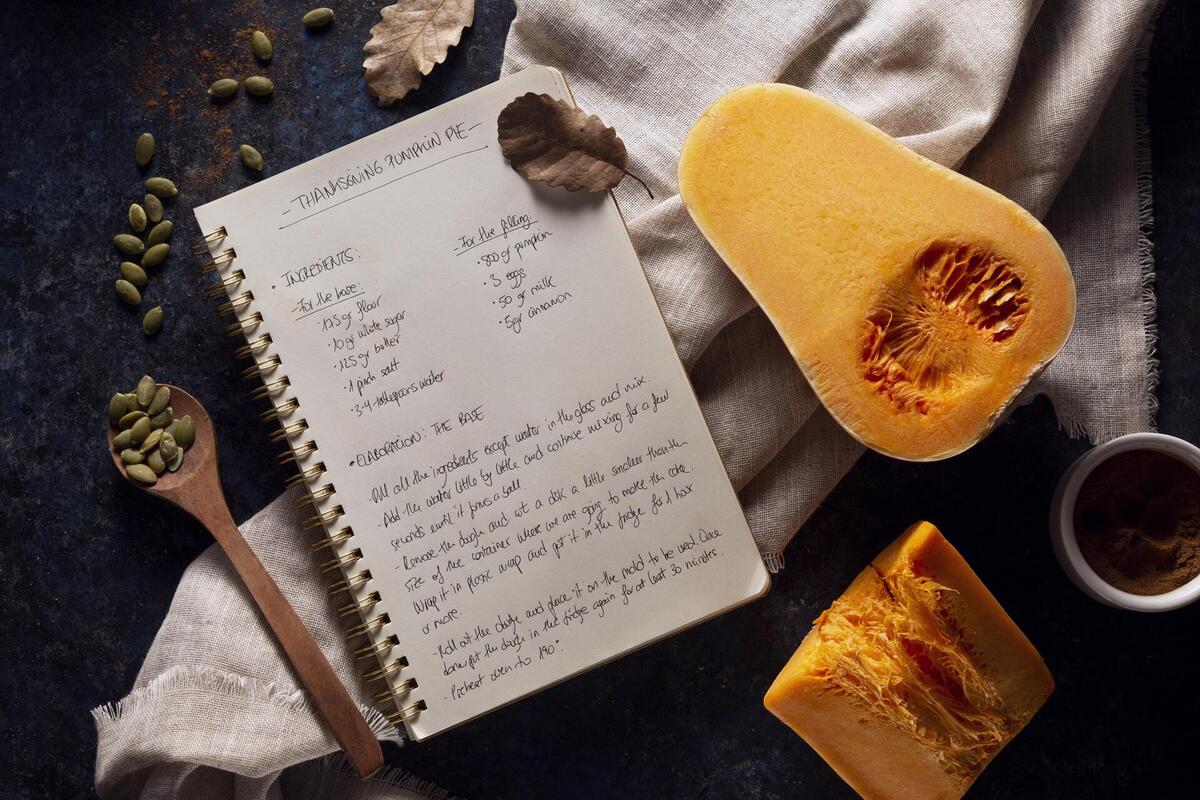 - THANKSGIVING PUMPKIN PIE -
• INGREDIENTS:
- For the base:
• 125 gr flour
• 10 gr white sugar
• 125 gr butter
• 1 pinch salt
• 3-4 tablespoons water
- For the filling:
• 800 gr pumpkin
• 3 eggs
• 50 gr milk
• 5 gr cinnamon
• ELABORACION: THE BASE
- Put all the ingredients except water in the glass and mix.
- Add the water little by little and continue mixing for a few
seconds until it forms a ball.
- Remove the dough and cut a disk a little smaller than the
size of the container where we are going to make the cake.
Wrap it in plastic wrap and put it in the fridge for 1 hour
or more.
- Roll out the dough and place it on the mold to be used. Once
done put the dough in the fridge again for at least 30 minutes.
- Preheat oven to 190°.